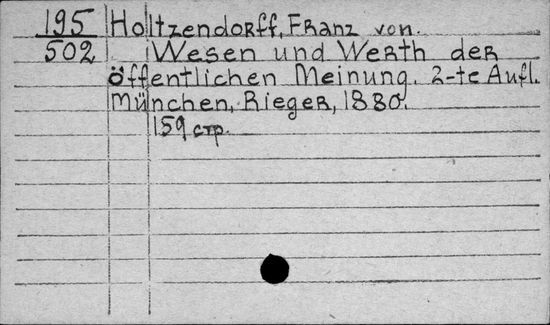 195 Holtzendorff, Franz von.
502 Wesen und Werth der
öffentlichen Meinung. 2-te Aufl.
München, Rieger, 1880.
159 стр.